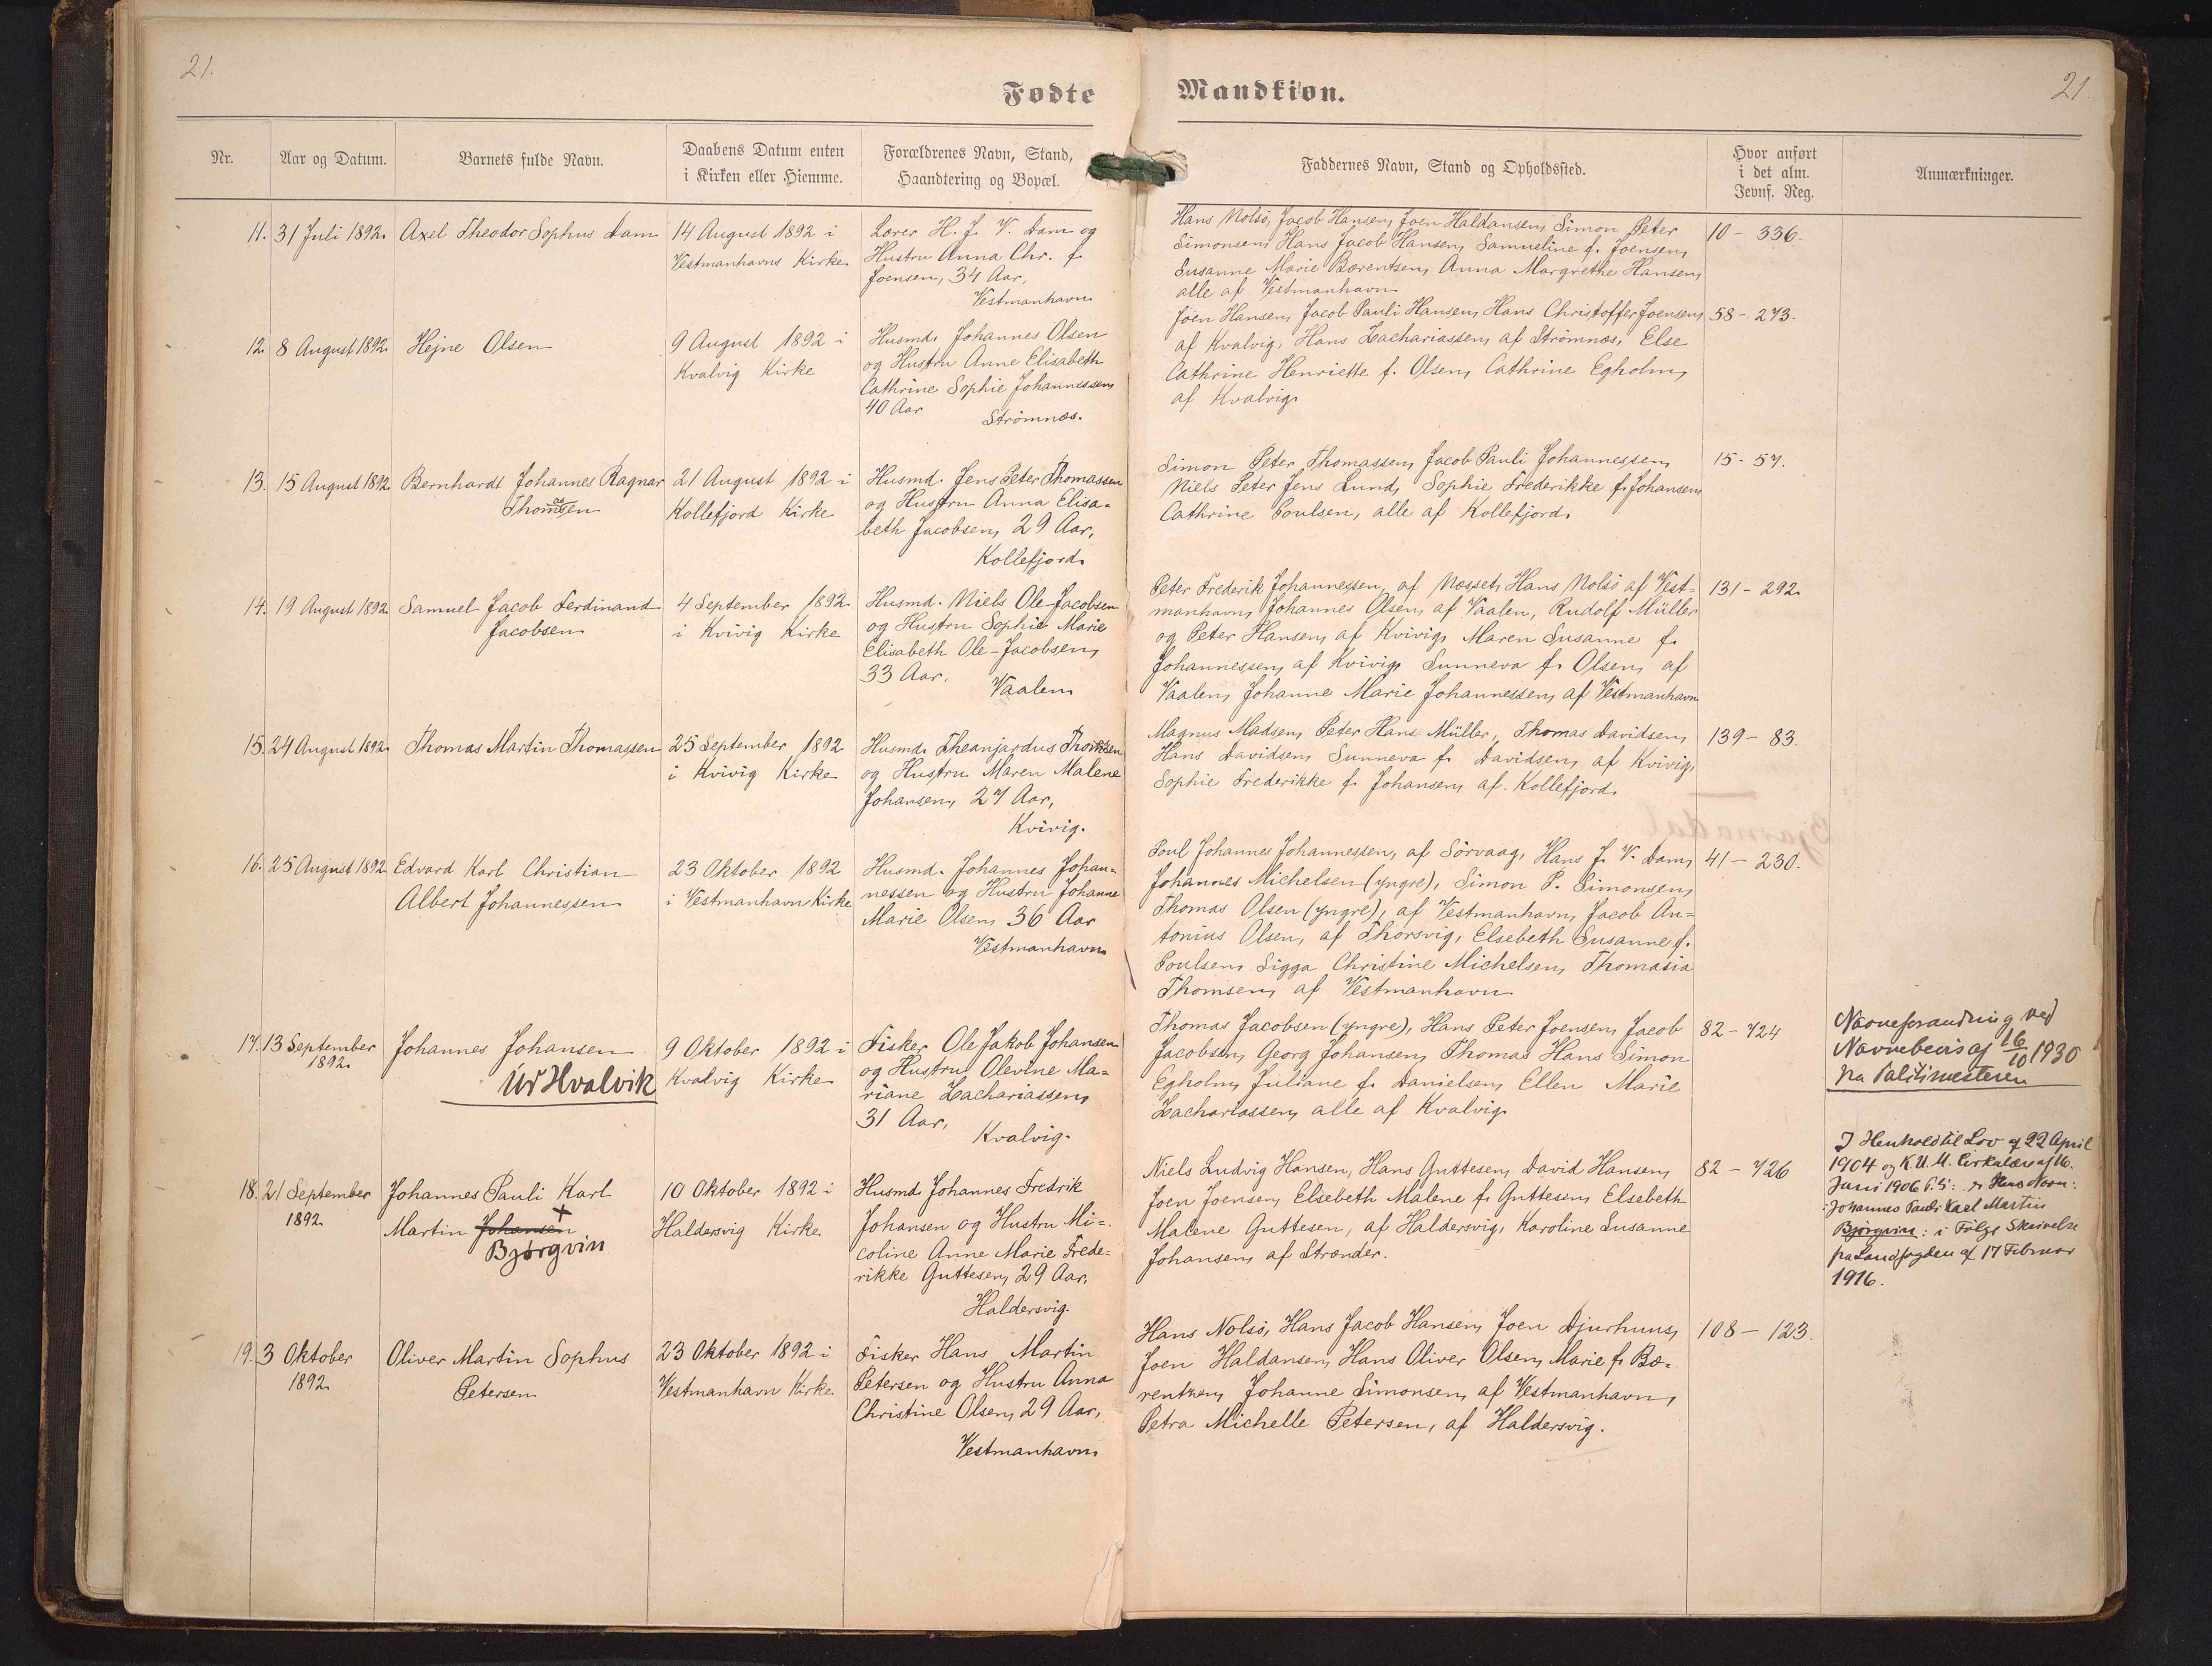 21.
Fødte
Mandkiøn.
21.
Nr.
Aar og Datum.
Barnets fulde Navn.
Daabens Datum enten
i Kirken eller Hiemme.
Forældrenes Navn, Stand,
Haandtering og Bopæl.
Faddernes Navn, Stand og Opholdssted.
Hvor anført
i det alm.
Jevnf. Reg.
Anmærkninger.
11.
31 Juli 1892.
Axel Theodor Sophus Dam
14 August 1892 i
Vestmanhavns Kirke.
Lærer H. J. V. Dam og
Hustru Anna Chr. f.
Joensen, 34 Aar,
Vestmanhavn
Hans Nolsö, Jacob Hansen, Joen Haldansen, Simon Peter
Simonsen, Hans Jacob Hansen, Samueline f. Joensen,
Susanne Marie Bærentsen, Anna Margrethe Hansen,
alle af Vestmanhavn
10 - 336.
12.
8 August 1892.
Hejne Olsen
9 August 1892 i
Kvalvig Kirke
Husmd. Johannes Olsen
og Hustru Anne Elisabeth
Cathrine Sophie Johannessen,
40 Aar
Strömnæs.
Joen Hansen, Jacob Pauli Hansen, Hans Christoffer Joensen,
af Kvalvig, Hans Zachariassen, af Strömnæs, Else
Cathrine Henriette f. Olsen, Cathrine Egholm,
af Kvalvig.
58 - 273.
13.
15 August 1892.
Bernhardt Johannes Ragnar
Thomsen
as
21 August 1892 i
Kollefjord Kirke
Husmd. Jens Peter Thomassen
og Hustru Anna Elisa=
beth Jacobsen, 29 Aar,
Kollefjord.
Simon Peter Thomassen, Jacob Pauli Johannessen,
Niels Peter Jens Lund, Sophie Frederikke f. Johansen,
Cathrine Poulsen, alle af Kollefjord.
15 - 57.
14.
19 August 1892.
Samuel Jacob Ferdinand
Jacobsen
4 September 1892.
i Kvivig Kirke
Husmd. Niels Ole-Jacobsen
og Hustru Sophie Marie
Elisabeth Ole-Jacobsen,
33 Aar.
Vaalen
Peter Frederik Johannessen, af Næsset, Hans Nolsö af Vest=
manhavn, Johannes Olsen, af Vaalen, Rudolf Müller
og Peter Hansen, af Kvivig, Maren Susanne f.
Johannessen, af Kvivig, Sunneva f. Olsen, af
Vaalen, Johanne Marie Johannessen, af Vestmanhavn
131 - 292.
15.
24 August 1892.
Thomas Martin Thomassen
25 September 1892
i Kvivig Kirke
Husmd. Theanjardus Thomsen
og Hustru Maren Malene
Johansen, 27 Aar,
Kvivig.
Magnus Madsen, Peter Hans Müller, Thomas Davidsen,
Hans Davidsen, Sunneva f. Davidsen, af Kvivig,
Sophie Frederikke f. Johansen, af Kollefjord.
139 - 83.
16.
25 August 1892.
Edvard Karl Christian
Albert Johannessen
23 Oktober 1892
i Vestmanhavn Kirke
Husmd. Johannes Johan=
nessen og Hustru Johanne
Marie Olsen, 36 Aar
Vestmanhavn
Poul Johannes Johannessen, af Sörvaag, Hans J. V. Dam,
Johannes Michelsen (yngre), Simon P. Simonsen,
Thomas Olsen (yngre), af Vestmanhavn, Jacob An=
tonius Olsen, af Thorsvig, Elsebeth Susanne f.
Poulsen, Sigga Christine Michelsen, Thomasia
Thomsen, af Vestmanhavn
41 - 230.
17.
13 September
1892.
Johannes Johansen
úr Hvalvik
9 Oktober 1892 i
Kvalvig Kirke
Fisker Ole Jakob Johansen
og Hustru Olevine Ma=
riane Zachariassen,
31 Aar,
Kvalvig.
Thomas Jacobsen (yngre), Hans Peter Joensen, Jacob
Jacobsen, Georg Johansen, Thomas Hans Simon
Egholm, Juliane f. Danielsen, Ellen Marie
Zachariassen, alle af Kvalvig.
82 - 724
Navneforandring ved
Navnebevis af 16/10 1930
fra Politimesteren
18.
21 September
1892.
Johannes Pauli Karl
Martin Johansen
Bjørgvin
10 Oktober 1892 i
Haldersvig Kirke
Husmd. Johannes Fredrik
Johansen og Hustru Mi=
coline Anne Marie Frede=
rikke Guttesen, 29 Aar.
Haldersvig.
Niels Ludvig Hansen, Hans Guttesen, David Hansen,
Joen Joensen, Elsebeth Malene f. Guttesen, Elsebeth
Malene Guttesen, af Haldersvig, Karoline Susanne
Johansen, af Strænder.
82 - 726
I Henhold til Lov af 22 April
1904 og K.U.M. Cirkulære af 16.
Juni 1906 Hans Navn:
Johannes Pauli Karl Martin
Bjørgvin: i Følge Skrivelse
fra Landfogden af 17 Februar
1916.
19.
3 Oktober
1892.
Oliver Martin Sophus
Petersen
23 Oktober 1892 i
Vestmanhavn Kirke.
Fisker Hans Martin
Petersen og Hustru Anna
Christine Olsen, 29 Aar,
Vestmanhavn
Hans Nolsö, Hans Jacob Hansen, Joen Djurhuus,
Joen Haldansen, Hans Oliver Olsen, Marie f. Bæ=
rentsen, Johanne Simonsen, af Vestmanhavn,
Petra Michelle Petersen, af Haldersvig.
108 - 123.